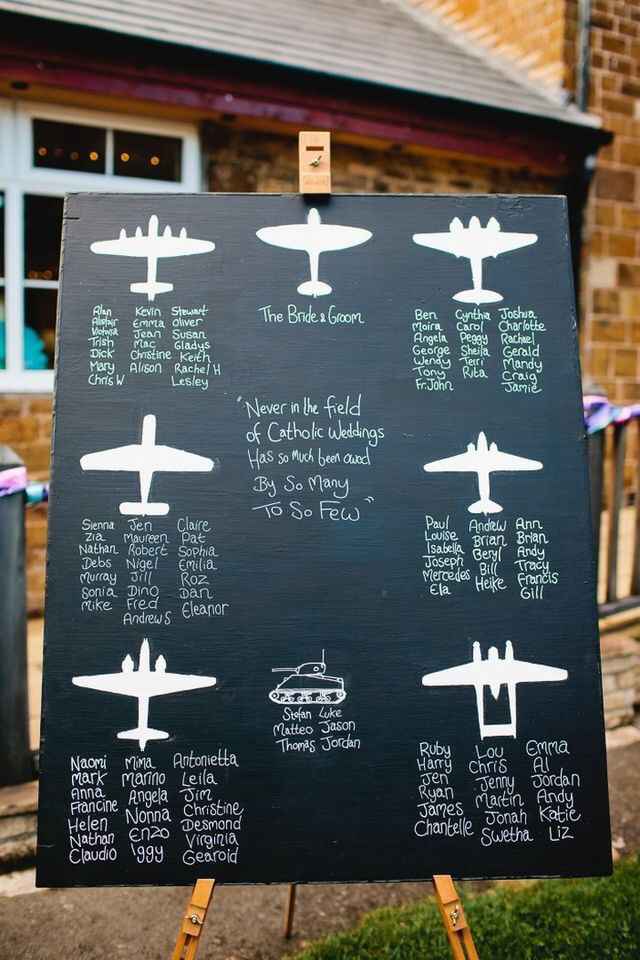 Alan Kevin Stewart
Alistair Emma Oliver
Jean Susan
Trish Mac Gladys
Dick Christine Keith
Mary Alison Rachel H
Chris W Lesley
The Bride & Groom
Ben Cynthia Joshua
Moira Carol Charlotte
Angela Peggy Rachael
George Sheila Gerald
Wendy Terri Mandy
Tony Rita Craig
Fr.John Jamie
"Never in the field
of Catholic Weddings
Has so much been owed
By So Many
To So Few"
Sienna Jen Claire
Zia Maureen Pat
Nathan Robert Sophia
Debs Nigel Emilia
Murray Jill Roz
Sonia Dino Dan
Mike Fred Eleanor
Andrew S
Paul Andrew Ann
Louise Brian Brian
Isabella Beryl Andy
Joseph Bill Tracy
Mercedes Heike Francis
Ela Gill
Naomi Mima Antonietta
Mark Marino Leila
Anna Angela Jim
Francine Nonna Christine
Helen Enzo Desmond
Nathan Iggy Virginia
Claudio Gearoid
Stefan Luke
Matteo Jason
Thomas Jordan
Ruby Lou Emma
Harry Chris Al
Jen Jenny Jordan
Ryan Martin Andy
James Jonah Katie
Chantelle Swetha Liz